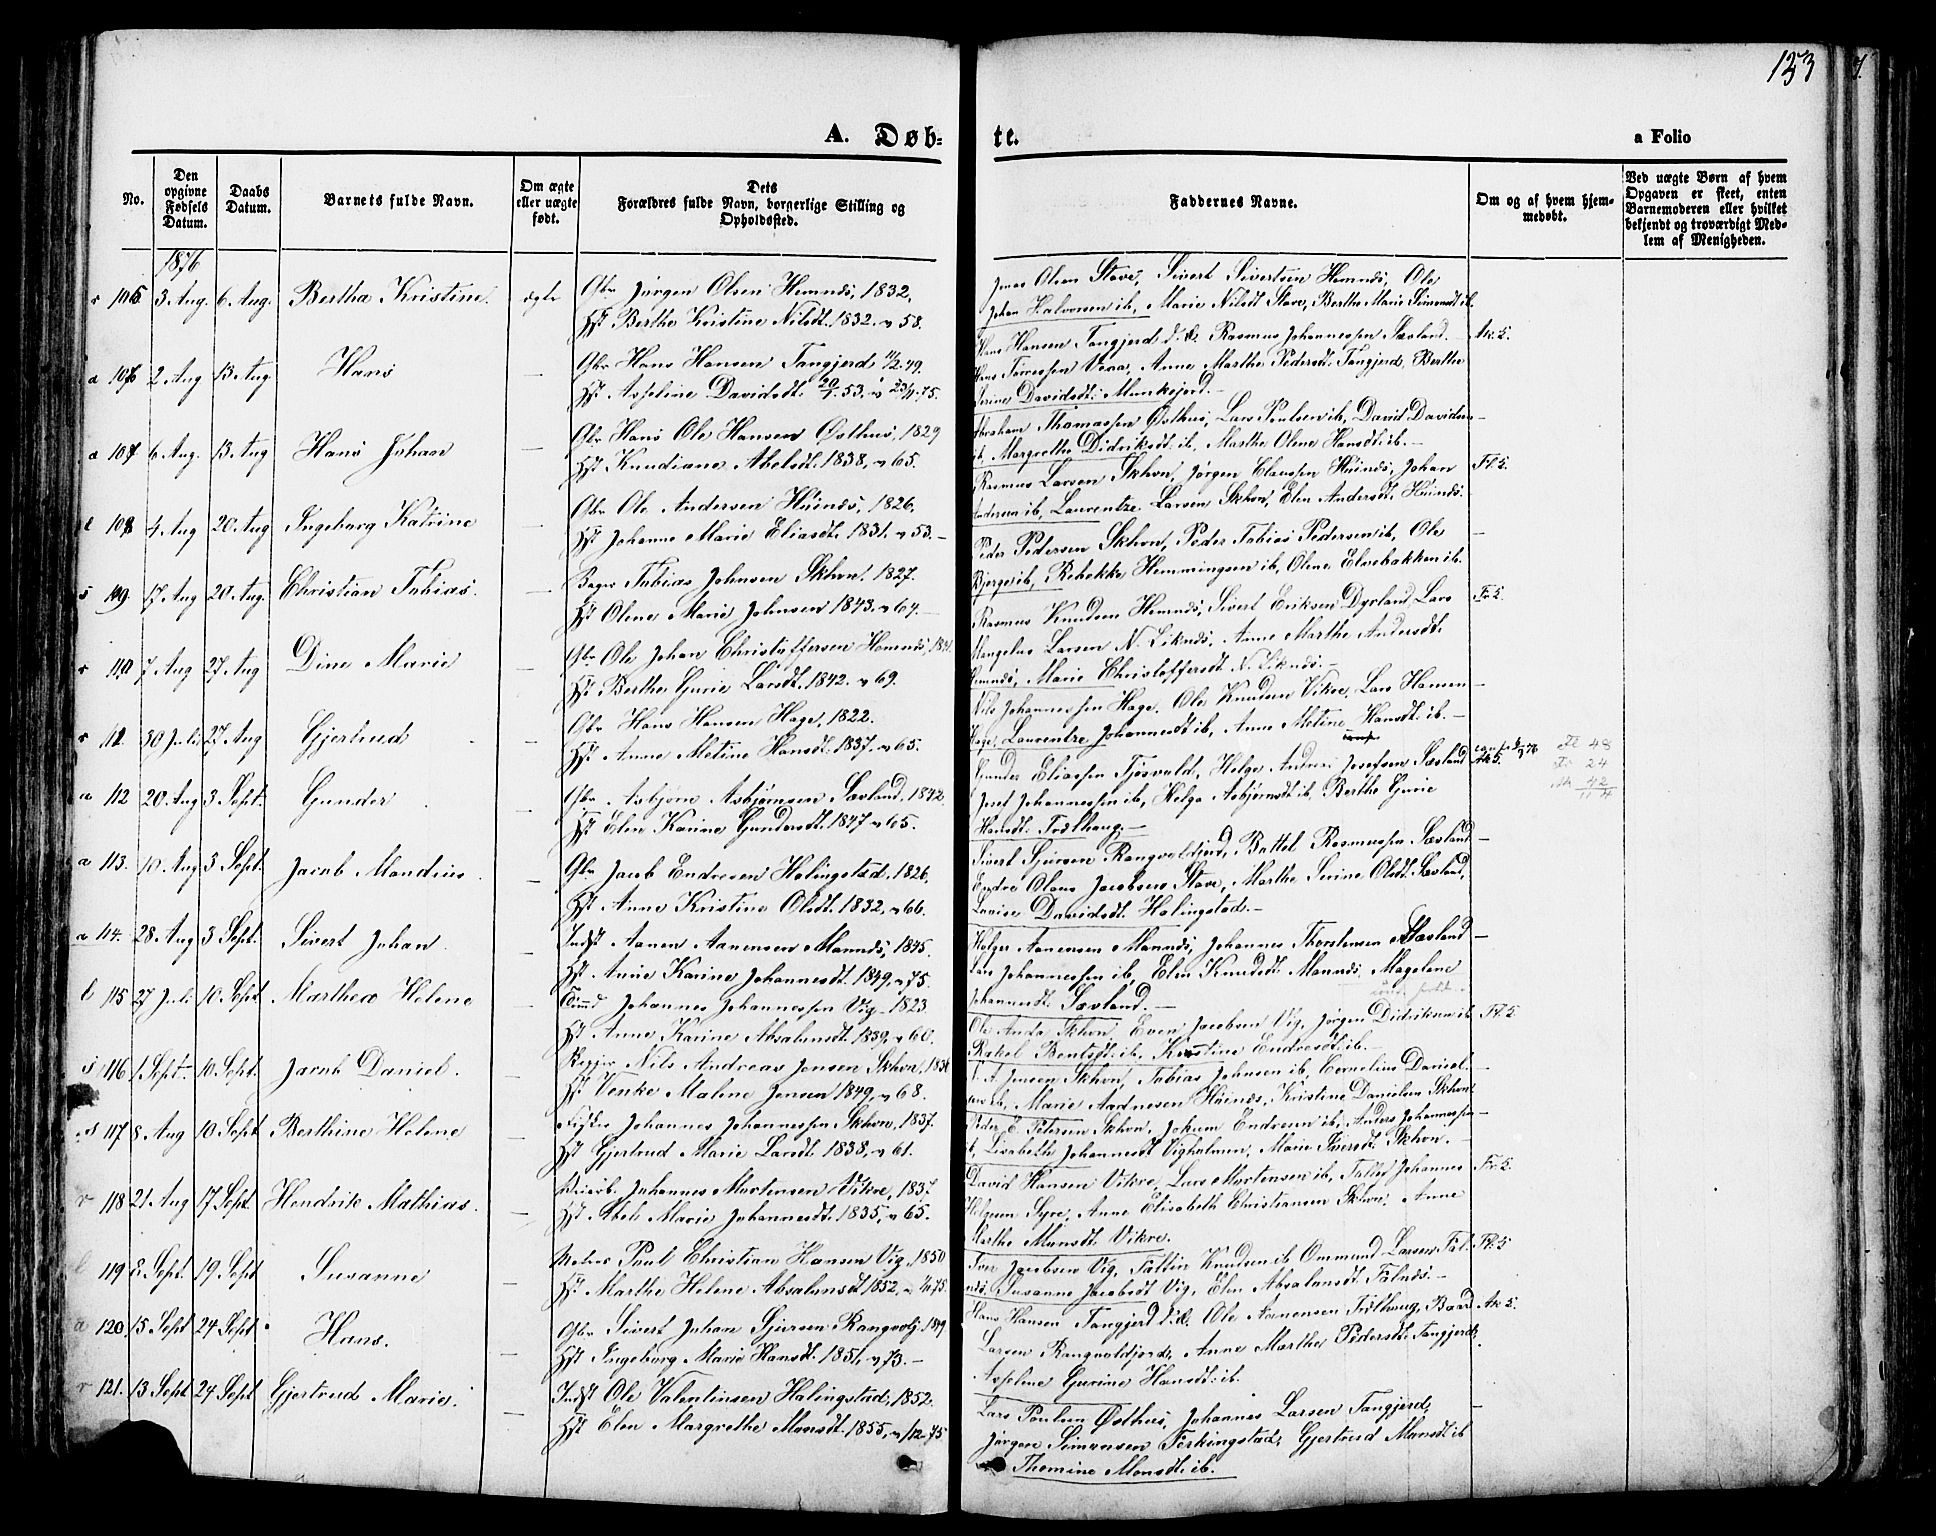 153
A. Døb-
te.
a Folio
No.
Den opgivne Fødsels Datum.
Daabs Datum.
Barnets fulde Navn.
Om ægte eller uægte født.
Dets Forældres fulde Navn, borgerlige Stilling og Opholdssted.
Faddernes Navne.
Om og af hvem hjemmedøbt.
Ved uægte Børn af hvem Opgaven er skeet, enten Barnemoderen eller hvilket bekjendt og troværdigt Medlem af Menigheden.
1876
r 105 3 Aug. 6 Aug. Bertha Kristine. ægte Gbr Jørgen Olsen Hemnæs, 1832,
Hst Berthe Kristine Nilsdt. 1832. v 58.
Olsen Stave, Sivert Sivertsen Hemnæs, Ole
Johan Halvorsen ib, Marie Nilsdt Stave, Berthe Marie Simonsdt ib.
a 106 2 Aug 13 Aug Hans Gbr Hans Hansen Tangjerd 11/2. 49.
Hst Axseline Davidsdt. 20/1. 53, v 23/4. 75.
Hans Hansen Tangjerd d. æ. Rasmus Johannessen Sævland. Ak. 5.
Hans Veaa, Anne Marthe Pedersdt. Tangjerd, Berthe
Serine Davidsdt. Munkejord.
a 107 6 Aug. 13 Aug Hans Johan — Gbr Hans Ole Hansen Østhus, 1829
Hst Knudiane Abelsdt. 1838, v 65.
Abraham Thomassen Østhus, Lars Poulsen ib, David Davidsen —
ib, Margrethe Didriksdt. ib, Marthe Oline Hansdt. ib. —
l 108 4 Aug 20 Aug Ingeborg Katrine — Gbr Ole Andersen Høinæs, 1826,
Hst Johanne Marie Eliasdt. 1831. v 53. —
Rasmus Larsen Skhvn, Jørgen Clausen Høinæs, Johan Fl. 5.
Andersen ib, Laurentze Larsen Skhvn, Elen Andersdt. Høinæs.
s 109 17 Aug 20 Aug. Christian Tobias. — Tobias Johnsen Skhvn, 1827.
Hst Oline Marie Johnsen 1843. v 64. —
Peder Pedersen Skhvn, Peder Tobias Pedersen ib, Ole —
Bjerge ib, Rebekke Hemmingsen ib, Oline Elvebakken ib.
r 110 7 Aug 27 Aug Dine Marie — Gbr Ole Johan Christoffersen Hemnæs, 1841.
Hst Berthe Gurie Larsdt. 1842. v 69.
Rasmus Knudsen Hemnæs, Sivert Eriksen Dyrland, Lars Fr. 5.
Mangelus Larsen N. Liknæs, Anne Marthe Andersdt.
Hemnæs, Marie Christoffersdt N. Liknæs. —
r 111 30 Juli 27 Aug Gjertrud — Gbr Hans Hansen Hage, 1822.
Hst Anne Metine Hansdt. 1837. v 65.
Nils Johannessen Hage. Ole Knudsen Vikre, Lars Hansen —
Hage, Laurentze Johannesdt ib, Anne Metine Hansdt. ib. —
a 112 20 Aug 3 Sept. Gunder — Gbr Asbjørn Asbjørnsen Sævland, 1842.
Hst Elen Karine Gundersdt. 1847 v 65.
Gunder Eliassen Tjøsvold, Helge Andreas Josefsen Sævland Ak 5.
Josef Johannessen ib, Helga Asbjørnsdt ib, Berthe Gurie
Hansdt. —
Fl 48
Fr 24
Ak 42
114
a 113. 10 Aug 3 Sept. Jacob Mandius. — Gbr Jacob Endresen Halingstad. 1826,
Hst Anne Kristine Olsdt. 1832, v 66.
Sivert Sjursen Rangvaldjord, Battel Rasmussen Sævland —
Endre Olaus Jacobsen Stave, Marthe Serine Olsdt. Sævland,
Lavise Davidsdt. Halingstad. —
a 114. 28 Aug 3 Sept. Sivert Johan. — Indst Aanen Aanensen Mannæs, 1845.
Hst Anne Karine Johannesdt. 1849, v 75.
Holger Aanensen Mannæs, Johannes Thorstensen Sævland —
Lars Johannessen ib, Elen Knudsdt. Mannæs, Magelene
Johannesdt. Sævland. —
l 115 27 Juli 10 Sept. Marthea Helene — Johannes Johannessen Vig. 1823.
Hst Anne Karine Absalonsdt. 1839, v 60.
Ole Skhvn, Even Jacobsen Vig, Jørgen Didriksen ib Fl. 5.
Rakel Bentsdt. ib, Kristine Endresdt. ib. —
s 116 1 Sept. 10 Sept. Jacob Daniel. — Nils Andreas Jensen Skhvn, 1836
Hst Venke Malene Jensen 1849, v 68.
Jensen Skhvn, Tobias Johnsen ib, Cornelius Daniel- —
sen ib, Marie Aadnesen Høinæs, Kristine Danielsen Skhvn.
s 117 8 Aug 10 Sept Berthine Helene — Fisker Johannes Johannessen Skhvn, 1837.
Hst Gjertrud Marie Larsdt. 1838, v 61.
Peder E. Petersen Skhvn, Jokum Endresen ib, Anders Johannessen —
ib, Lisabeth Johannesdt Vigholmen, Marie Iversdt. Skhvn. —
r 118 21 Aug 17 Sept. Hendrik Mathias. — Johannes Mortensen Vikre, 1837
Hst Abel Marie Johannesdt. 1835, v 65.
David Hansen Vikre, Lars Mortensen ib, Johannes Fr. 5.
Helgesen Syre, Anne Elisabeth Christiansen Skhvn, Anne
Marthe Monsdt. Vikre.
l 119 2 Sept. 19 Sept Susanne — Matros Poul Christian Hansen Vig, 1850
Hst Marthe Helene Absalonsdt 1852,
Iver Jacobsen Vig, Knudsen ib Ommund Larsen Fal- Fl. 5
næs, Susanne Jacobsdt Vig, Elen Absalonsdt. Falnæs. —
a 120 15 Sept 24 Sept. Hans. — Gbr Sivert Johan Sjursen Rangvalj. 1849
Hst Ingeborg Marie Hansdt. 1851, v 73. —
Hans Hansen Tangjerd d. æ. Ole Aanensen Baard Ak 5.
Larsen Rangvaldjord, Anne Marthe Pedersdt. Tangjerd,
Axseline Gurine Hansdt. ib.
r 121. 13 Sept 24 Sept Gjertrud Marie. — Indst Ole Valentinsen Halingstad, 1852.
Hst Elen Margrethe Monsdt. 1855, v /12. 75
Lars Poulsen Østhus, Johannes Larsen Tangjerd, —
Jørgen Simonsen Ferkingstad, Gjertrud Monsdt ib
Thomine Monsdt. ib.